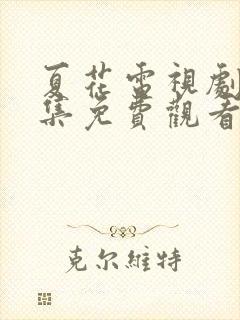 夏花雷視劇
集免費觀看
克尔維特